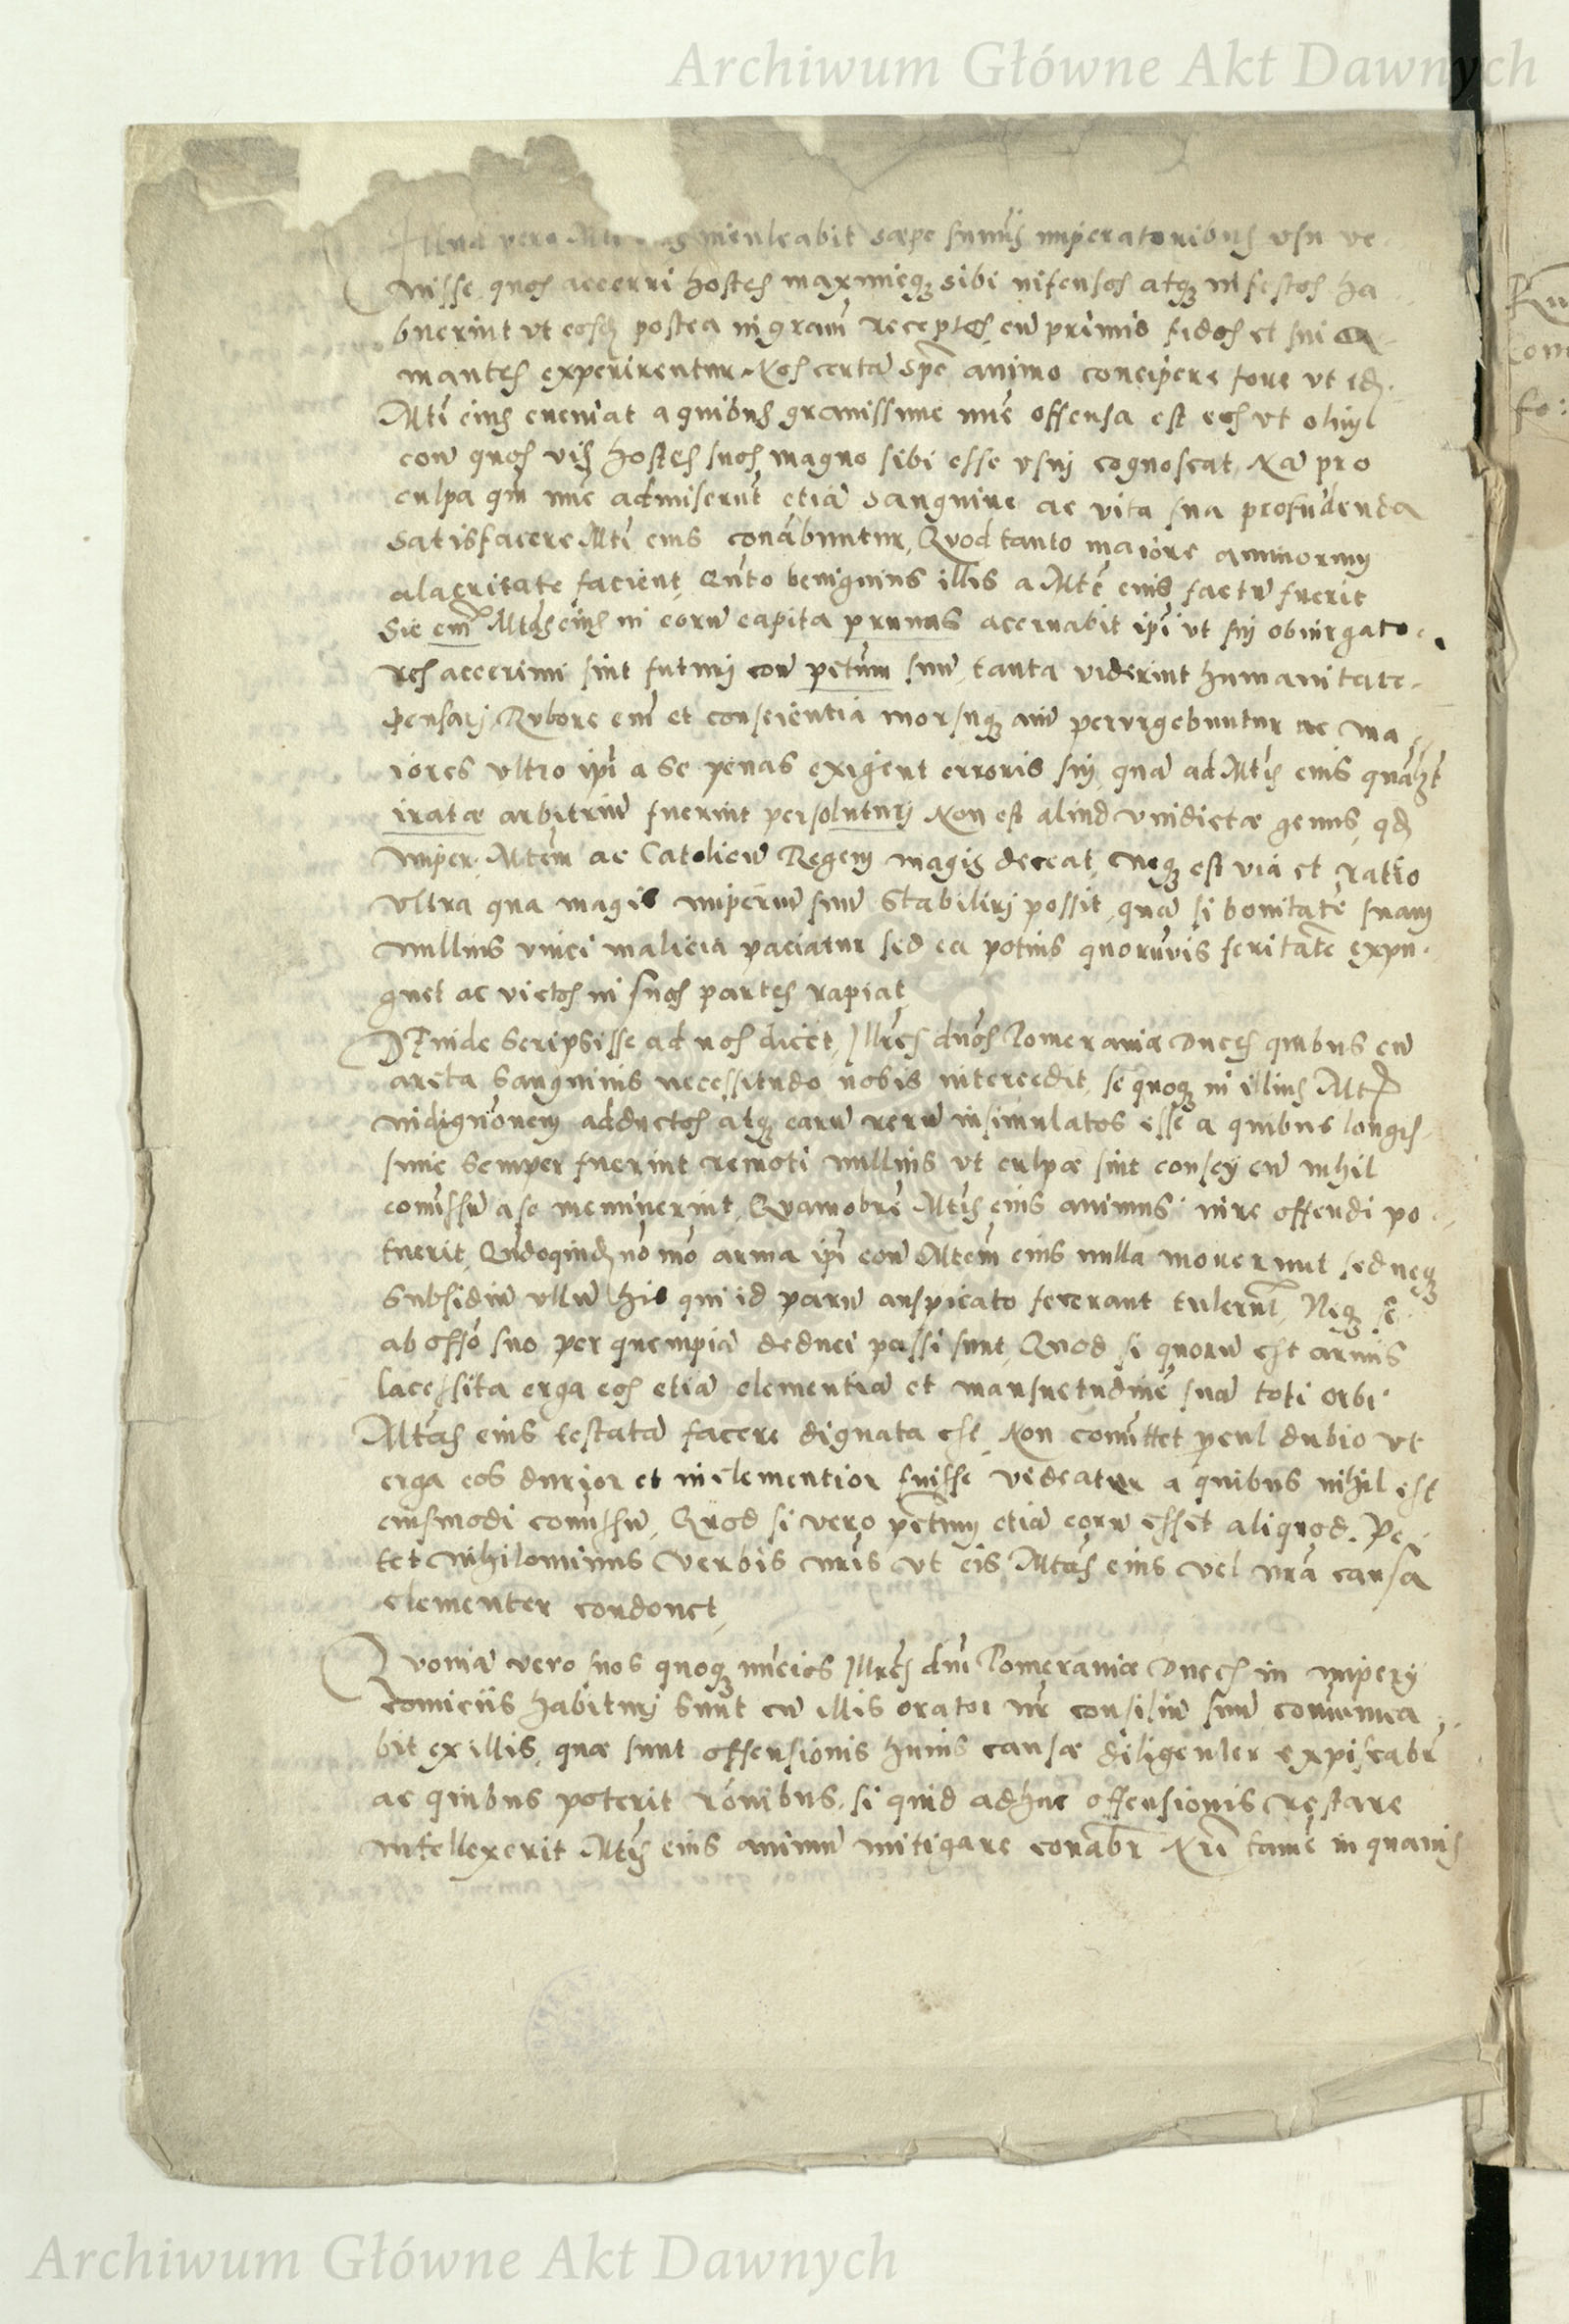 Archiwum Główne Akt Dawnych
Illud vero inculcabit sæpe sum̃is imperatoribus usu ve
nisse, quos acerri hostes maximeq; sibi infensos atq; infestos ha
buerint ut eosd̃ postea in gram̃ receptos, cũ primis fidos et sui a
mantes experirentur. Nos certã spẽ animo concipere fore ut id̃
Mti eius eveniat a quibus gravissime nũc offensa est eos ut olim
cont̃ quos vis hostes suos magno sibi esse usui cognoscat, Nã pro
culpa qm̃ nũc admiserũt etiã sanguine ac vita sua profũdenda
satisfacere Mti eius conabuntur, Quod tanto maiore animorum
alacritate facient, Qñto benignius illis a Mte eius factũ fuerit
Sic em̃ Mtas eius in eorũ capita prunas acervabit ipĩ ut sui obiurgato
res acerrimi sint futuri cont̃ pctum suũ, tanta viderint humanitate
pensari, Rubore em̃ et conscientia morsuq; aĩm perurgebuntur ac ma
iores ultro ipĩ a se penas exigent erroris sui, quã ad Mtis eius quãt̃
iratæ arbitriũ fuerint persoluturi Non est aliud vindictæ genus, qd̃
Imper. Mtem ac Catolicũ Regem magis deceat, neq; est via et ratio
ultra qua magis imperiũ suũ stabiliri possit, quã si bonitatẽ suam
nullius vinci malicia paciatur sed ea potius quorũvis feritatẽ expu
gnet ac victos in suos partes rapiat
Deinde scripsisse ad nos dicet, Illres dños Pomeraniæ Duces quibus cũ
arcta sanguinis necessitudo nobis intercedit, se quoq; in illius Mtis
indignõnem adductos atq; earũ rerũ insimulatos esse a quibus longis
sime semper fuerint remoti nullius ut culpæ sint conscij cũ nihil
comissũ a se meminerint, Quamobrẽ Mtis eius animus iure offendi po
tuerit, Qñdoquidẽ nõ mõ arma ipĩ cont̃ Mtem eius nulla moverunt sed neq;
subsidiũ ullũ his qui id parũ auspicato fecerant tulerũt, Neq; se
ab offõ suo per quempiã deduci passi sunt, Quod si quorũ est armis
lacessita erga eos etiã clementiã et mansuetudinẽ suã toti orbi
Mtas eius testatã facere dignata est, Non comittet pcul dubio ut
erga eos durior et inclementior fuisse videatur a quibus nihil est
eiusmodi comissũ, Quod si vero pctum etiã eorũ esset aliquod. Pe
tet nihilominus verbis nr̃is ut eis Mtas eius vel nr̃a causa
clementer condonet,
Quoniã vero suos quoq; nũcios Illres dñi Pomeraniæ Duces in imperij
comiciis habituri sunt cũ illis orator nr̃ consiliũ suũ comunica
bit ex illis, quæ sunt offensionis huius causæ diligenter expiscabr̃
ac quibus poterit rõnibus, si quid adhuc offensionis restare
intellexerit Mtis eius animũ mitigare conabr̃ Nr̃i tamẽ in quavis
Archiwum Główne Akt Dawnych